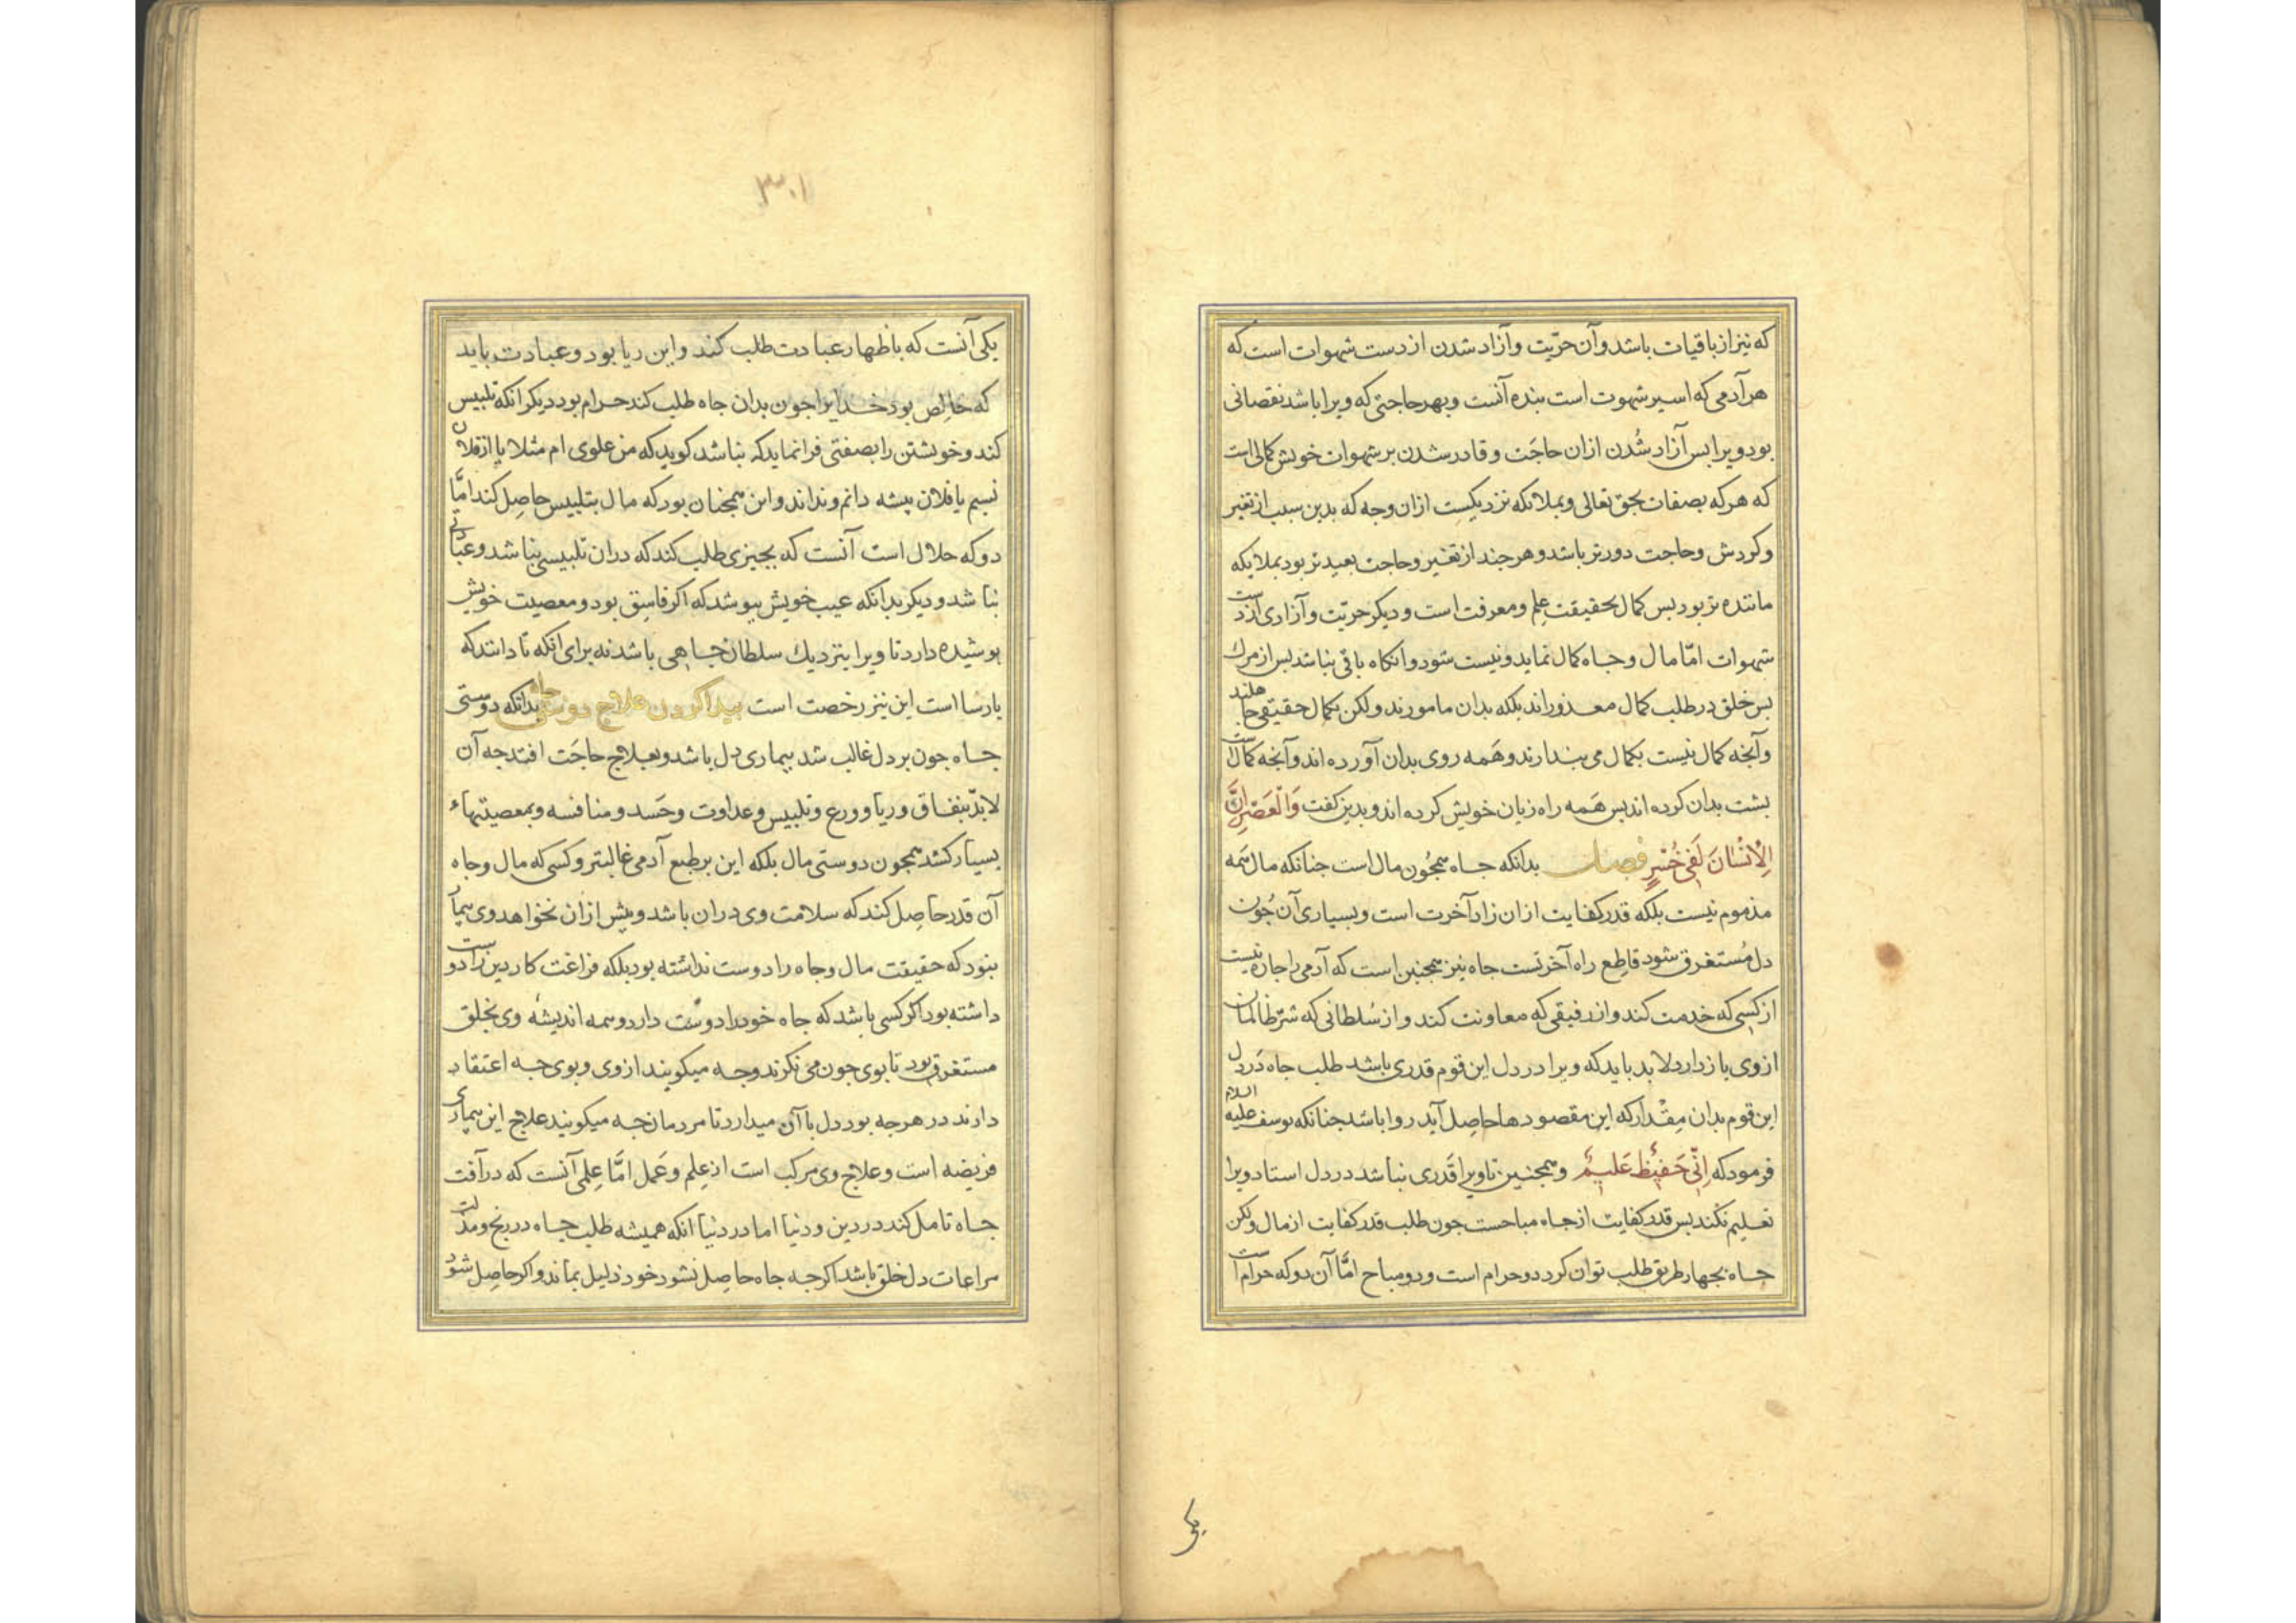 که نیز از باقیات باشد و آن حرّیت و آزاد شدن از دست شهوات است که
هر آدمی که اسیر شهوت است بنده آنست و بهر حاجتی که ویرا باشد نقصانی
بود ویرا بس آزاد شُدن ازان حاجَت و قادر شدن بر شهوات خویش کمالی است
که هر که بصفات بحق تعالی و بملائکه نزدیکست ازان وجه که بدین سبب از تغیر
و کردش و حاجت دورتر باشد و هر جند از تغیر و حاجت بعیدتر بود بملایکه
مانده تر بود بس کمال بحقیقت عِلم و معرفت است و دیکر حریّت و آزادی از دست
شهوات امّا مال و جاه کمال نماید و نیست شود و آنکاه باقی بناشد بس از مرک
بس خلق در طلب کمال معذوراند بلکه بدان مامورند ولکن بکمال حقیقی جاهلند
و آنجه کمال نیست بکمال می بندارند و هَمه روی بدان آورده اند و آنجه کمال است
بشت بدان کرده اند بس هَمه راه زیان خویش کرده اند و بدین کفت وَالْعَصْرِ اِنَّ
الِانْسَانَ لَفی خُسْرٍ فصل بدانکه جاه همجُون مال است جنانکه مال هَمه
مذموم نیست بلکه قدر کفایت ازان زاد آخرت است و بسیاری آن جُون
دل مُستغرق شود قاطِع راه آخرتست جاه نیز همجنین است که آدمی را جاره نیست
از کسی که خدمت کند و از رفیقی که معاونت کند و از سُلطانی که شرّ ظالمان
از وی باز دارد لابد باید که ویرا در دل این قوم قدری باشد طلب جاه دَر دل
این قوم بدان مِقْدار که این مقصودها حاصِل آید روا باشد جنانکه یوسف علیه السلام
فرمود که اِنّی حَفیٌظ عَلیمٌ و همجنین تا ویرا قَدری بناشد در دل استاد ویرا
تعلیم نکند بس قدر کفایت از جاه مباحست جون طلب قدر کفایت از مال ولکن
جاه بجهار طریق طلب توان کرد دو حرام است و دو مباح امّا آن دو که حرام است
یکی
۳۰۱
یکی آنست که باظهار عبادت طلب کند و این ریا بود و عبادت باید
که خالِص بود خدایرا جون بدان جاه طلب کند حرام بود دیکر انکه تلبیس
کند و خویشتن را بصفتی فرا نماید که بناشد کوید که من علوی ام مثلا یا از فلان
نسبم یا فلان پیشه دانم و نداند و این همجنان بود که مال بتلبیس حاصِل کند امّا
دو که حلال است آنست که بجیزی طلب کند که دران تلبیسی بناشد و عبادتی
بناشد و دیکر بدانکه عیب خویش ببوشد که اکر فاسِق بود و معصیت خویش
بوشیده دارد تا ویرا بنزدیك سلطان جاهی باشد نه برای انکه تا دانند که
پارسا است این نیز رخصت است بیدا کردن علاج دوستی جاه بدانکه دوستی
جاه جون بر دل غالب شد بیماری دل باشد و بعلاج حاجَت افتد جه آن
لابدّ بنفاق و ریا و ورع و تلبیس و عداوت و حَسد و منافسه و بمعصیتهاء
بسیار کشد همجون دوستی مال بلکه این بر طبع آدمی غالبتر و کسی که مال و جاه
آن قدر حاصِل کند که سلامت وی دران باشد و بیش ازان نخواهد وی بیمار
بنود که حقیقت مال و جاه را دوست نداشته بود بلکه فراغت کار دین را دوست
داشته بود اکر کسی باشد که جاه خود را دوست دارد و همه اندیشه وی بخلق
مستغرق بود تا بوی جون می نکرند و جه میکویند از وی و بوی جه اعتقاد
دارند در هر جه بود دل با آن میدارد تا مردمان جه میکویند علاج این بیماری
فریضه است و علاج وی مرکب است از عِلم و عَمل امَّا عِلمی آنست که در آفت
جاه تامل کند در دین و دنیا اما در دنیا انکه همیشه طلب جاه در رنج و مذلت
مراعات دل خلق باشد اکر جه جاه حاصِل نشود خود ذلیل بماند و اکر حاصِل شود